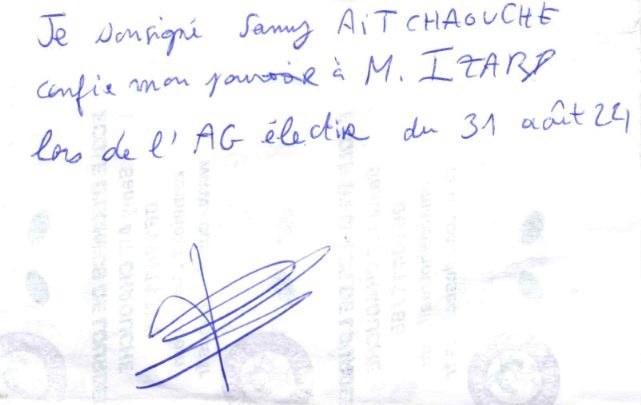 Je sousigné Samy AIT CHAOUCHE
confie mon pouvoir à M. IZARD
lors de l'AG élective du 31 août 24